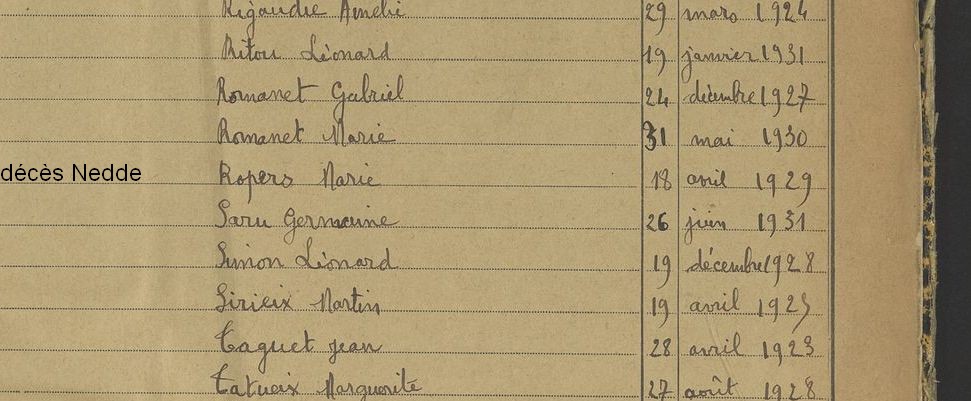 Rigaudie Amélie 29 mars 1924
Ritou Léonard 19 janvier 1931
Romanet Gabriel 24 décembre 1927
Romanet Marie 31 mai 1930
décès Nedde Ropers Marie 18 avril 1929
Saru Germaine 26 juin 1931
Simon Léonard 19 décembre 1928
Sirieix Martin 19 avril 1925
Taguet Jean 28 avril 1923
Tatueix Marguerite 27 août 1928